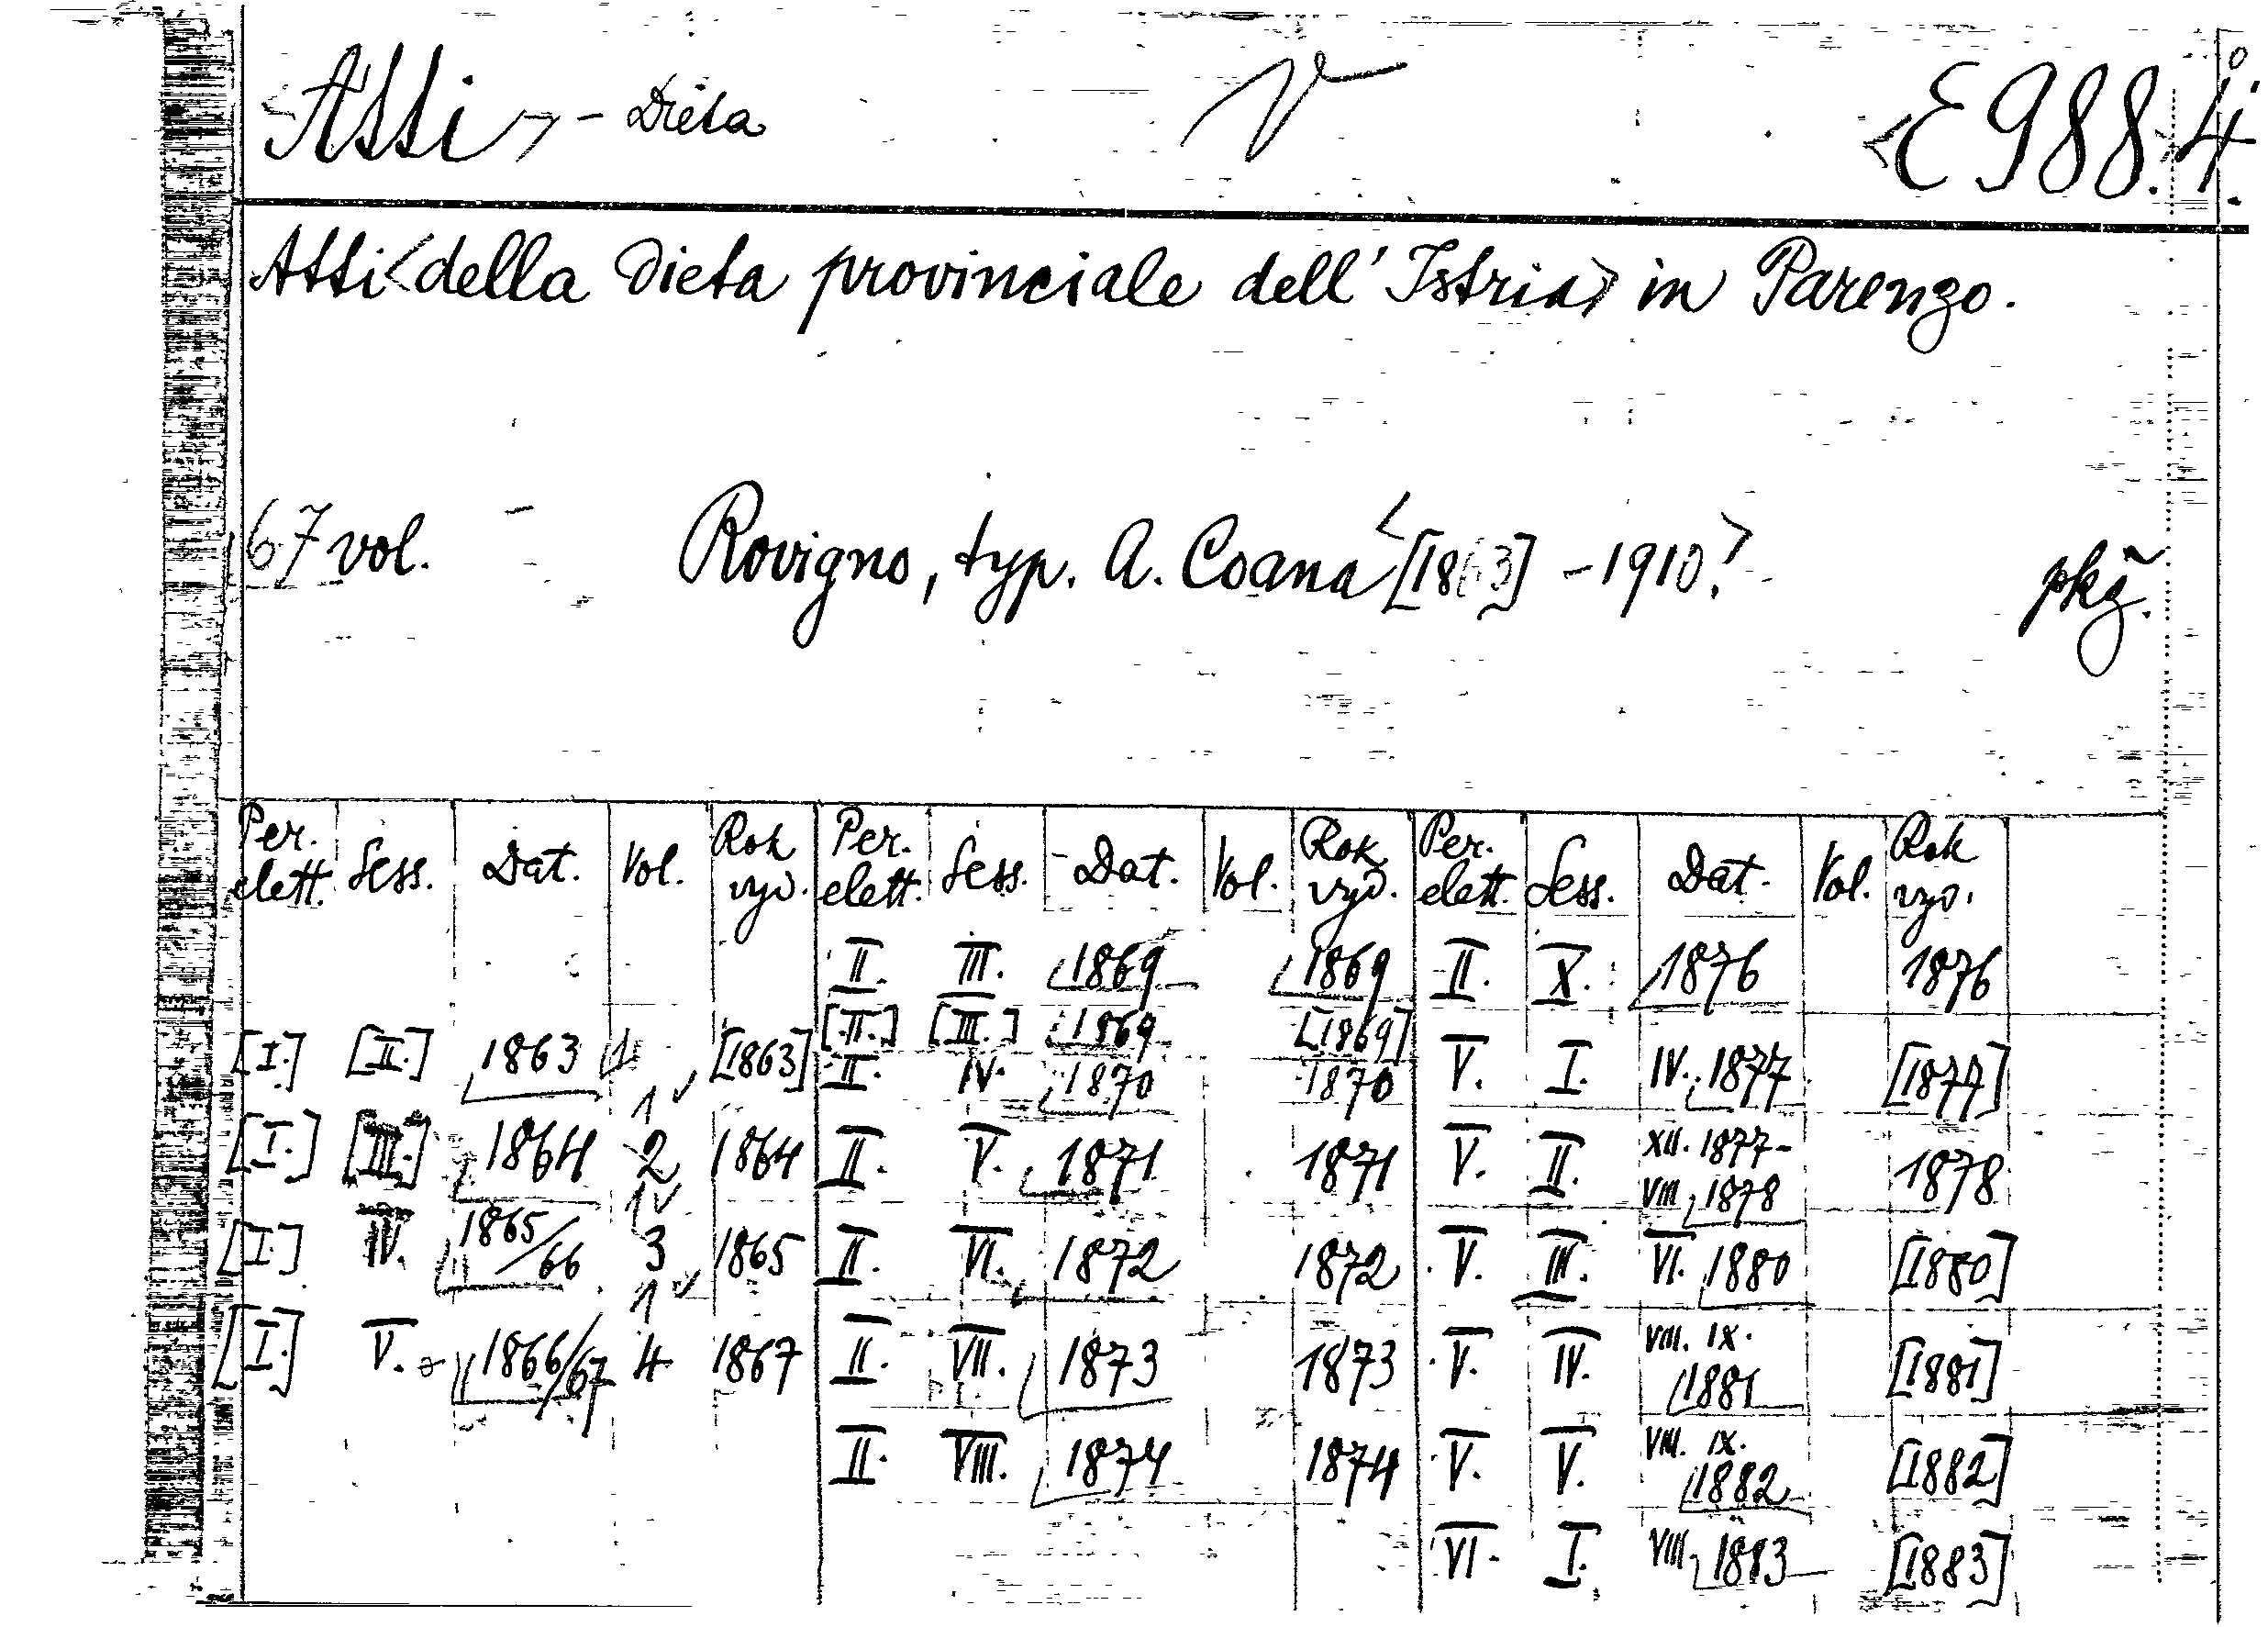 Atti - Dieta V E 988. 4°.
Atti <della Dieta provinciale dell' Istria> in Parenzo.
67 vol. - Rovigno, typ. A. Coana <[1863] - 1910.>
Per. elett. Sess. Dat. Vol. Rok vyd. Per. elett. Sess. Dat. Vol. Rok vyd. Per. elett. Sess. Dat. Vol. Rok vyd.
II. III. 1869 1869 II. X. 1876 1876
[I.] [II.] 1863 1 [1863] [II.] [III.] 1869 [1869]
II. IV. 1870 1870 V. I. IV. 1877 [1877]
1 ✓
[I.] [III.] 1864 2 1864 II. V. 1871 1871 V. II. XII. 1877- VIII. 1878 1878
1 ✓
[I.] IV. 1865/66 3 1865 II. VI. 1872 1872 V. III. VI. 1880 [1880]
1 ✓
[I.] V. 1866/67 4 1867 II. VII. 1873 1873 V. IV. VIII. IX. 1881 [1881]
II. VIII. 1874 1874 V. V. VIII. IX. 1882 [1882]
VI. I. VIII. 1883 [1883]